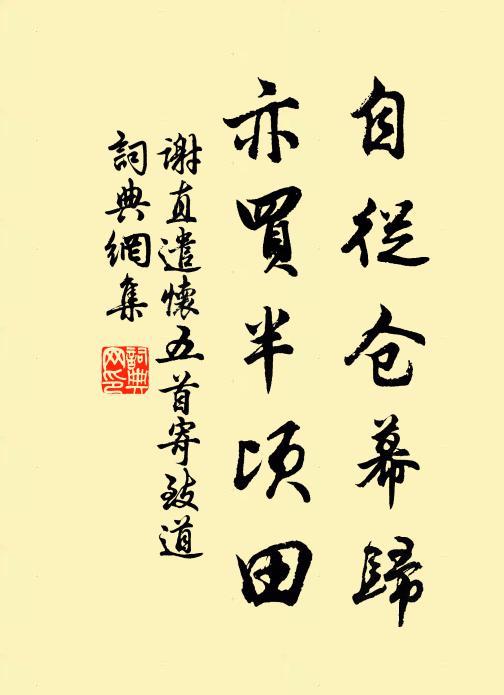 自從仓幕歸
亦買半頃田
谢直遣懷五首寄致道
詞典網集
詞典网印